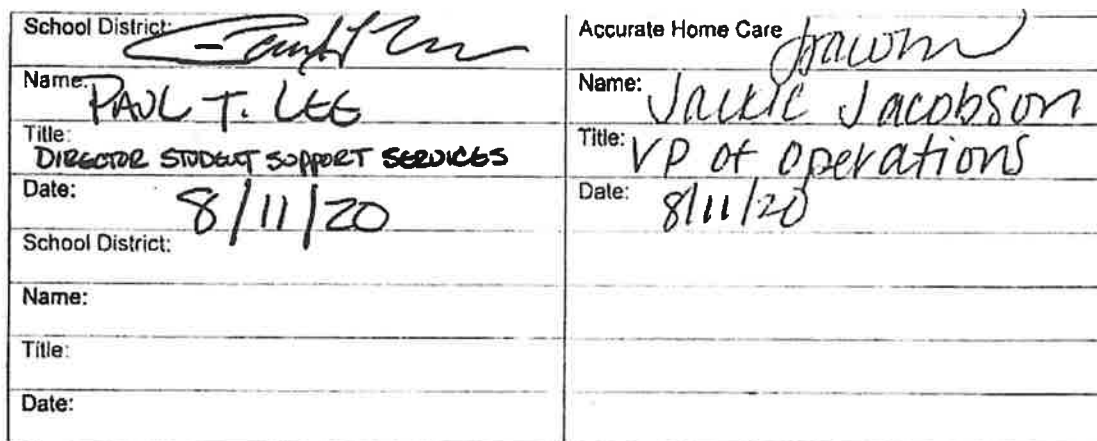 School District:
Name: PAUL T. LEE
Title: DIRECTOR STUDENT SUPPORT SERVICES
Date: 8/11/20
School District:
Name:
Title:
Date:
Accurate Home Care
Name: Jackie Jacobson
Title: VP of operations
Date: 8/11/20